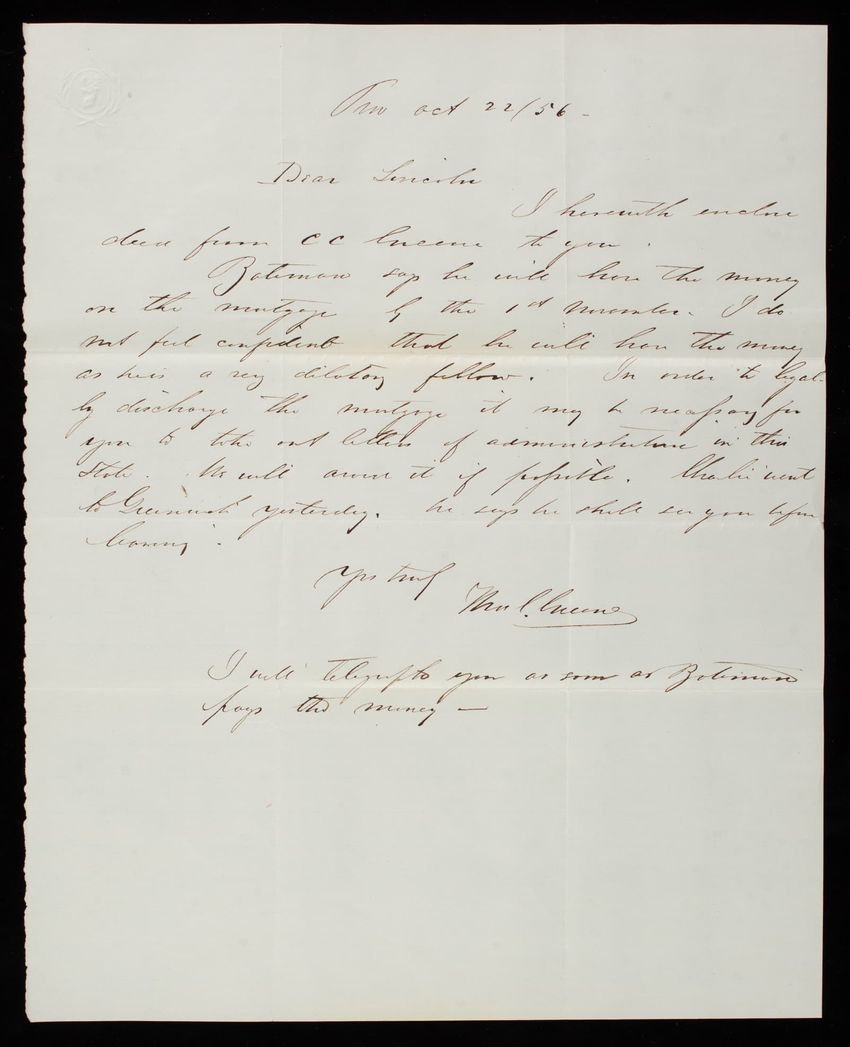 Prov Oct 22/56 -
Dear Lincoln
I herewith enclose
deed from C C Greene to you.
Bateman says he will have the money
on the mortgage by the 1st November. I do
not feel confident that he will have the money
as he is a very dilatory fellow. In order to legal-
ly discharge the mortgage it may be necessary for
you to take out letters of administration in this
State. We will avoid it if possible. Charlie went
to Greenwich yesterday. he says he shall see you before
leaving.
Yrs truly
Thos C. Greene
I will telegraph to you as soon as Bateman
pays the money —